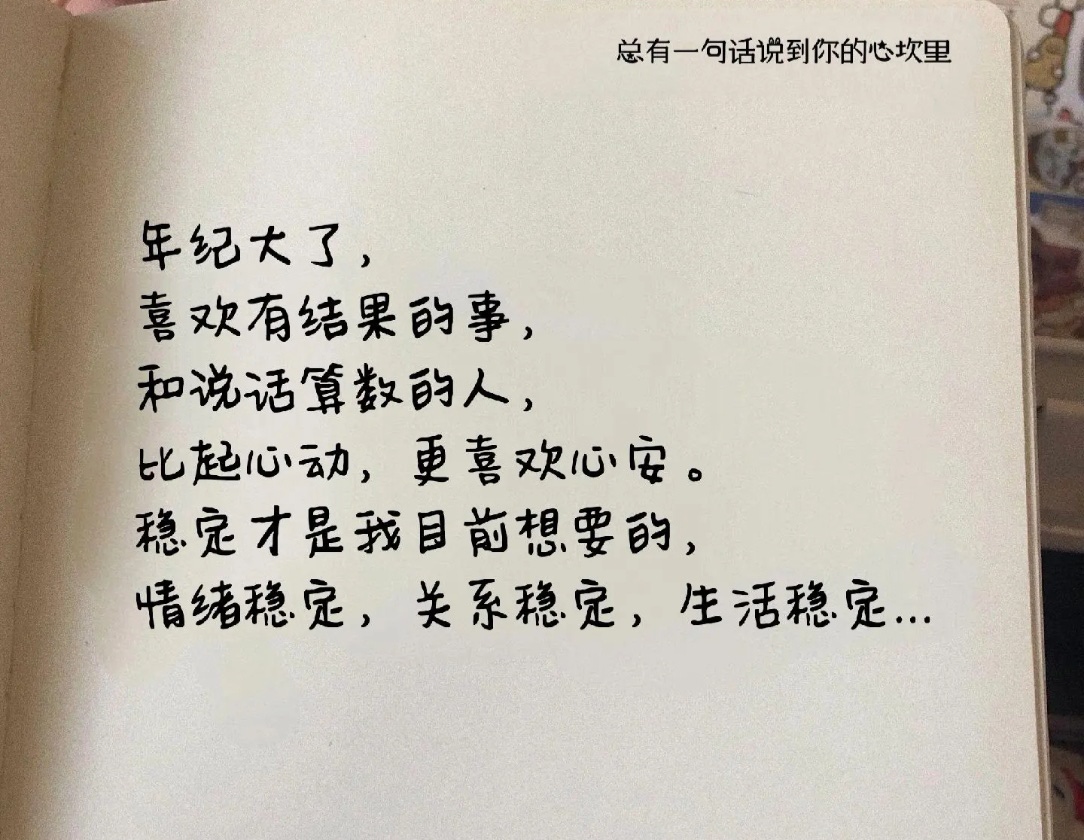 总有一句话说到你的心坎里
年纪大了，
喜欢有结果的事，
和说话算数的人，
比起心动，更喜欢心安。
稳定才是我目前想要的，
情绪稳定，关系稳定，生活稳定...